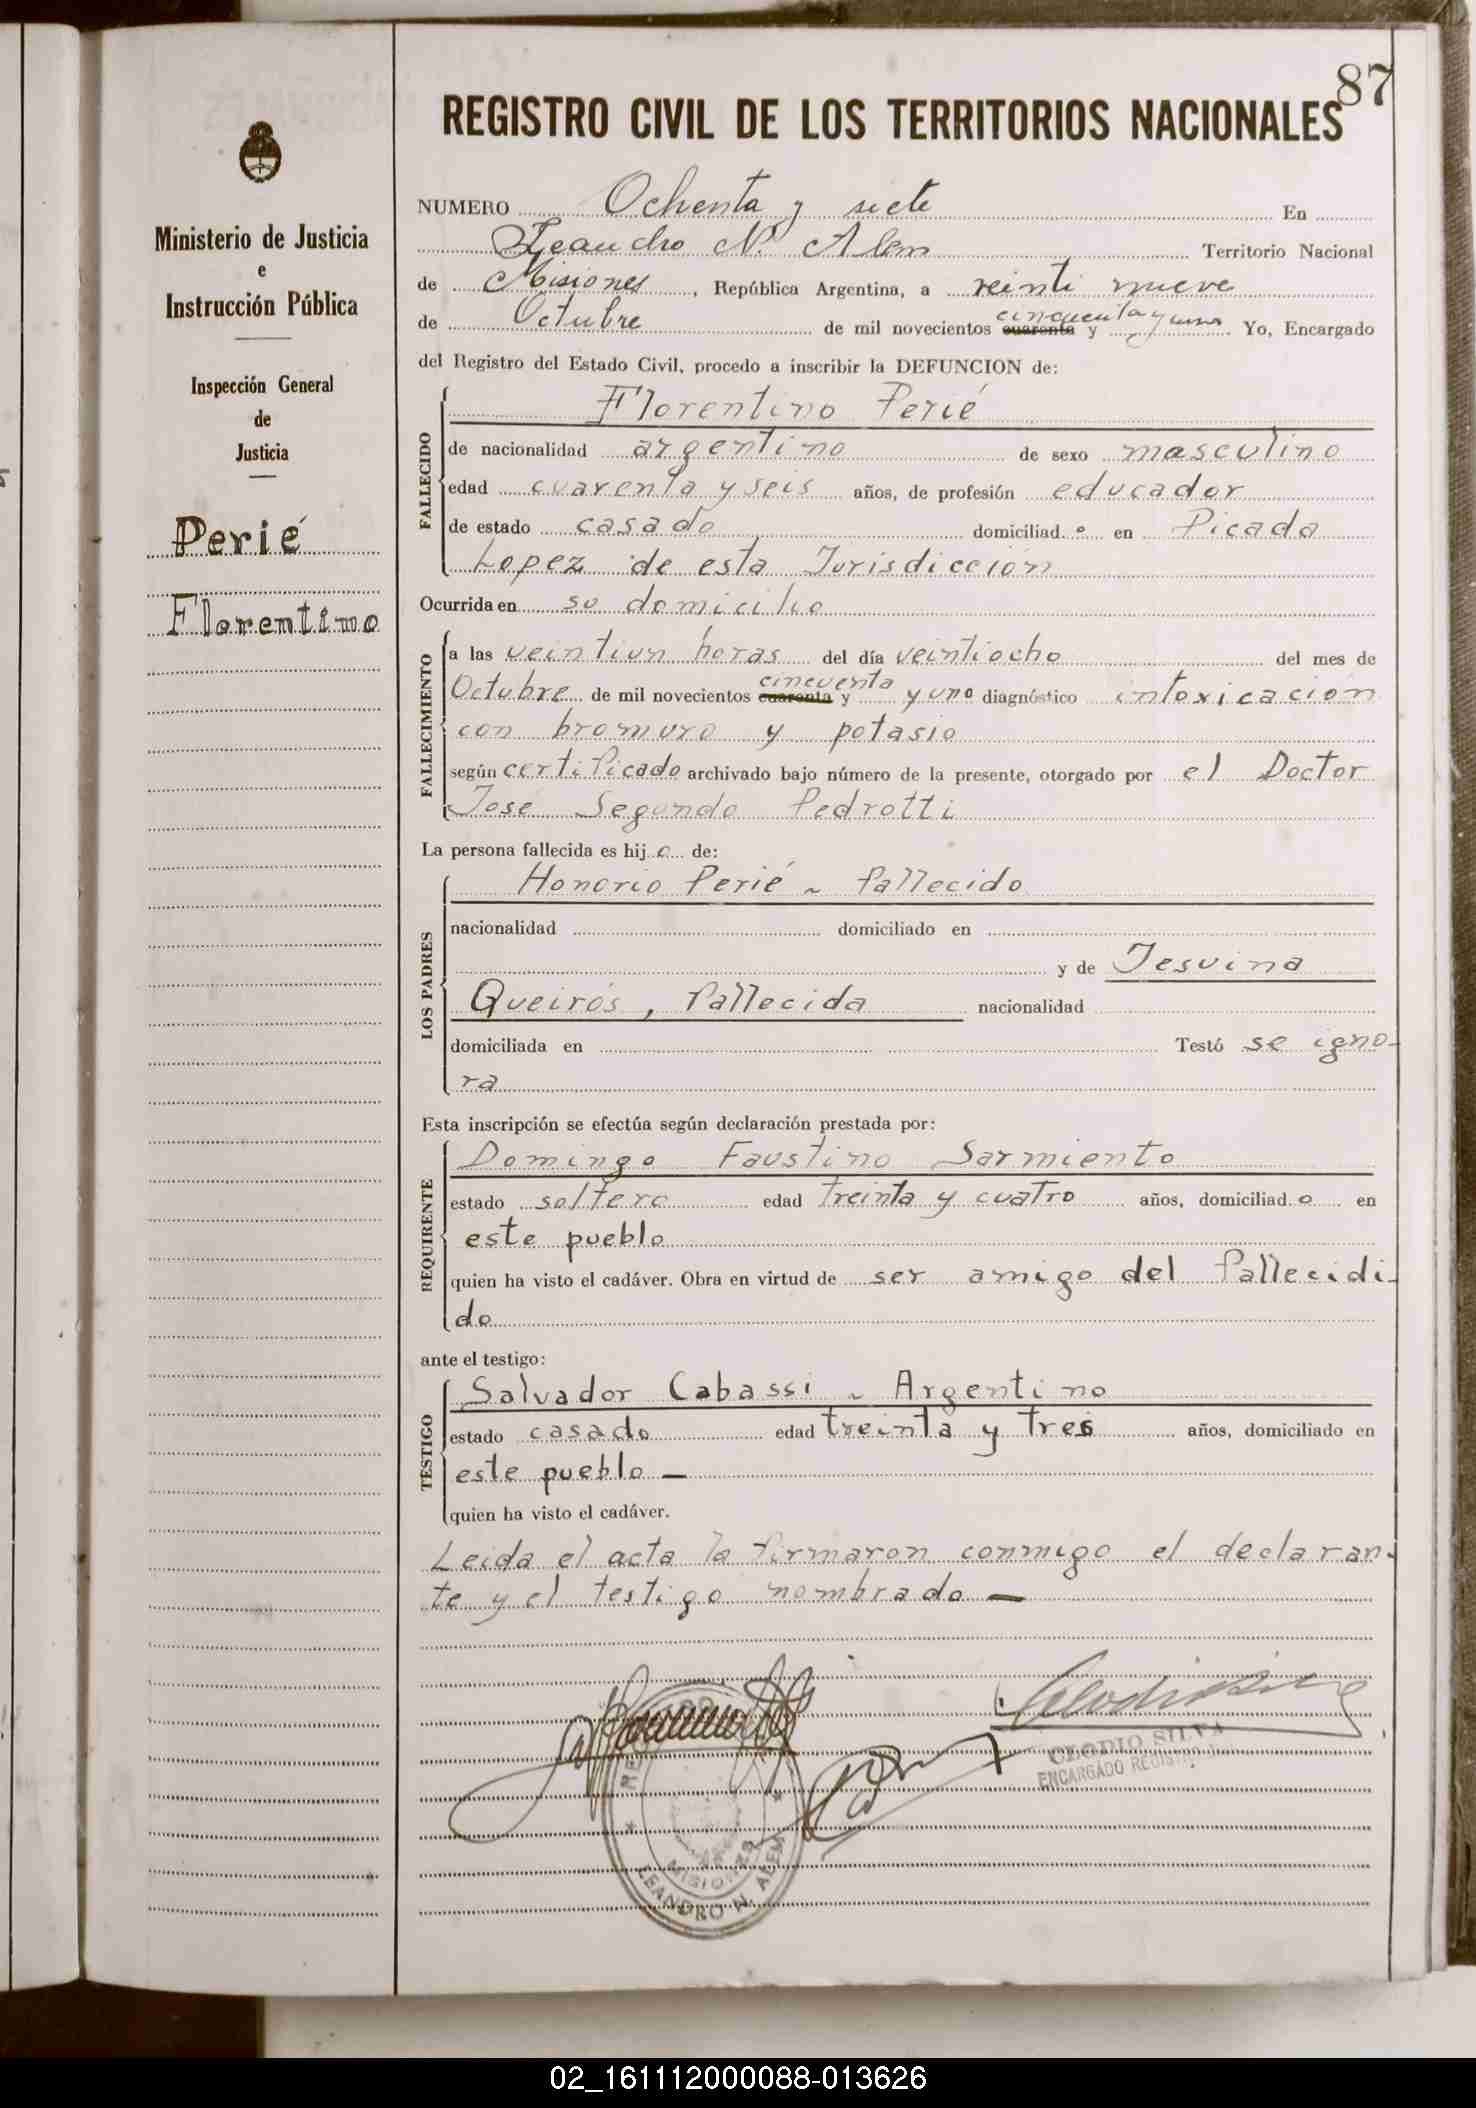 87
REGISTRO CIVIL DE LOS TERRITORIOS NACIONALES
Ministerio de Justicia
e
Instrucción Pública
Inspección General
de
Justicia
Perié
Florentino
NUMERO Ochenta y siete En
Leandro N. Alem Territorio Nacional
de Misiones, República Argentina, a veinti nueve
de Octubre de mil novecientos cuarenta y cincuenta y uno. Yo, Encargado
del Registro del Estado Civil, procedo a inscribir la DEFUNCION de:
FALLECIDO
Florentino Perié
de nacionalidad argentino de sexo masculino
edad cuarenta y seis años, de profesión educador
de estado casado domiciliad o en Picada
Lopez de esta Jurisdiccion
Ocurrida en su domicilio
FALLECIMIENTO
a las veintiun horas del día veintiocho del mes de
Octubre de mil novecientos cuarenta y cincuenta y uno diagnóstico intoxicacion
con bromuro y potasio
según certificado archivado bajo número de la presente, otorgado por el Doctor
José Segundo Pedrotti
La persona fallecida es hij o de:
LOS PADRES
Honorio Perié ~ fallecido
nacionalidad domiciliado en
y de Jesuina
Queirós, fallecida nacionalidad
domiciliada en Testó se igno-
ra
Esta inscripción se efectúa según declaración prestada por:
REQUIRENTE
Domingo Faustino Sarmiento
estado soltero edad treinta y cuatro años, domiciliad o en
este pueblo
quien ha visto el cadáver. Obra en virtud de ser amigo del fallecidi-
do
ante el testigo:
TESTIGO
Salvador Cabassi ~ Argentino
estado casado edad treinta y tres años, domiciliado en
este pueblo —
quien ha visto el cadáver.
Leida el acta la firmaron conmigo el declaran-
te y el testigo nombrado —
CLODIO SILVA
ENCARGADO REGISTRO
MISIONES
LEANDRO N. ALEM
02_161112000088-013626